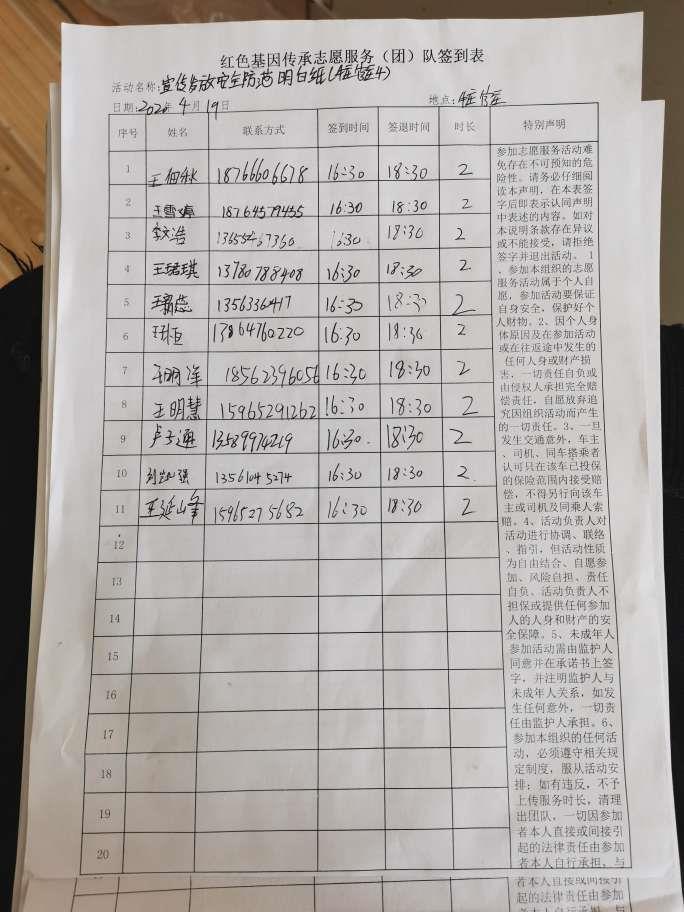 红色基因传承志愿服务（团）队签到表
活动名称:宣传发放安全防范明白纸
日期:2020年4月19日 地点:
序号 姓名 联系方式 签到时间 签退时间 时长 特别声明
1 18766606678 16:30 18:30 2
2 王雪婷 18764579455 16:30 18:30 2
3 李文浩 16:30 18:30 2
4 王珺琪 13780788408 16:30 18:30 2
5 1356336417 16:30 18:30 2
6 13864760220 16:30 18:30 2
7 王明泽 18562396056 16:30 18:30 2
8 王明慧 15965291262 16:30 18:30 2
9 13589974219 16:30 18:30 2
10 刘凯强 13561045274 16:30 18:30 2
11 王延山峰 15965275682 16:30 18:30 2
12
13
14
15
16
17
18
19
20
参加志愿服务活动难
免存在不可预知的危
险性。请务必仔细阅
读本声明，在本表签
字后即表示认同声明
中表述的内容。如对
本说明条款存在异议
或不能接受，请拒绝
签字并退出活动。 1
、参加本组织的志愿
服务活动属于个人自
愿，参加活动要保证
自身安全，保护好个
人财物。2、因个人身
体原因及在参加活动
或在往返途中发生的
任何人身或财产损
害，一切责任自负或
由侵权人承担完全赔
偿责任，自愿放弃追
究因组织活动而产生
的一切责任。3、一旦
发生交通意外，车主
、司机、同车搭乘者
认可只在该车已投保
的保险范围内接受赔
偿，不得另行向该车
主或司机及同乘人索
赔。4、活动负责人对
活动进行协调、联络
、指引，但活动性质
为自由结合、自愿参
加、风险自担、责任
自负、活动负责人不
担保或提供任何参加
人的人身和财产的安
全保障。5、未成年人
参加活动需由监护人
同意并在承诺书上签
字，并注明监护人与
未成年人关系，如发
生任何意外，一切责
任由监护人承担。6、
参加本组织的任何活
动，必须遵守相关规
定制度，服从活动安
排；如有违反，不予
上传服务时长，清理
出团队，一切因参加
者本人直接或间接引
起的法律责任由参加
者本人自行承担，与
者本人直接或间接引
起的法律责任由参加